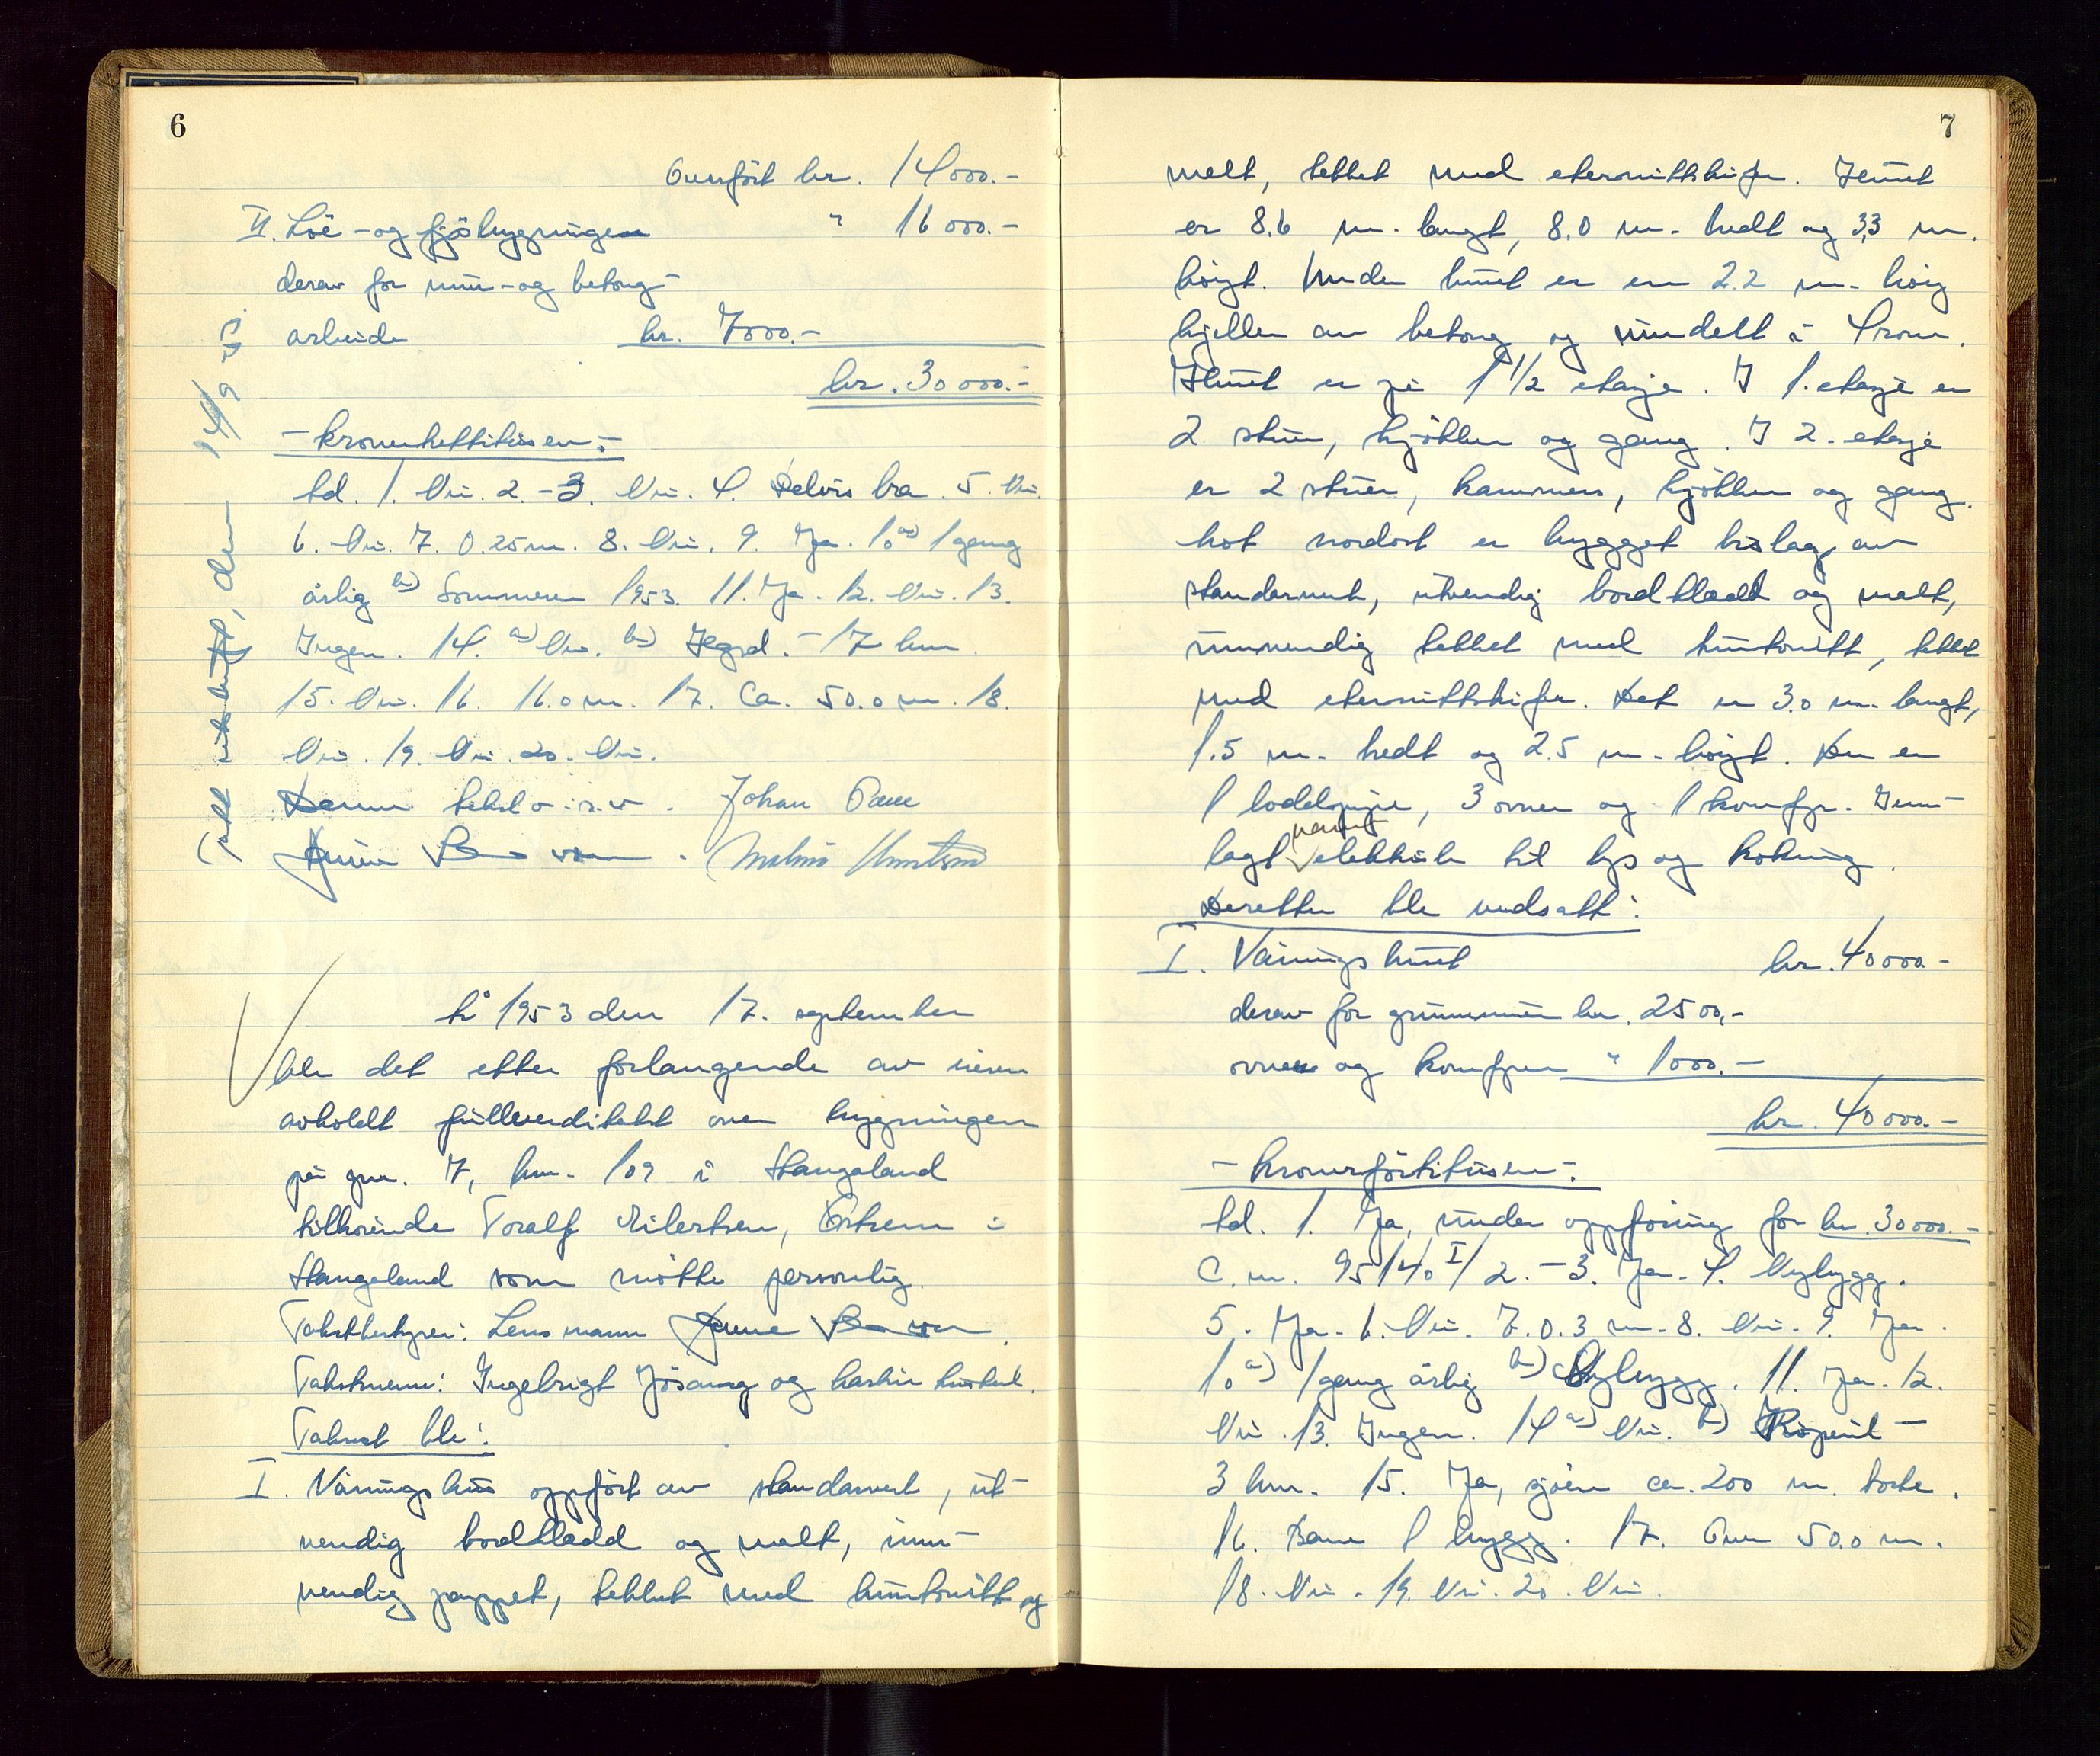 6
Overført kr. 14000.-
II. Löe - og fjösbygningen " 16000.-
derav for mur- og betong-
arbeide kr. 7000.-
kr. 30000.-
- kronertrettitusen -.
td. 1. Nei. 2. - 3. Nei. 4. Delvis bra. 5. Nei.
6. Nei. 7. 0.25 m. 8. Nei. 9. Ja. 10 a) 1 gang
årlig b) Sommeren 1953. 11. Ja. 12. Nei. 13.
Ingen. 14. a) Nei. b) - 17 km.
15. Nei. 16. 16.0 m. 17. Ca. 50.0 m. 18.
Nei. 19. Nei. 20. Nei.
Denne takst o.s.v. Johan
Malmin Knutsen
Takst utskrift, den 14/9 53.
År 1953 den 17. september
ble det etter forlangende av eieren
avholdt fullverditakst over bygningen
på gnr. 7, bnr. 109 i Stangeland
tilhörende Toralf Eilertsen, Östrem i
Stangeland som mötte personlig.
Takstbestyrer: Lensmann
Takstmenn: Ingebrigt Jösang og
Takst ble:
I. Våningshus oppfört av standarverk, ut-
vendig bordkledd og malt, inn-
vendig pappet, tekket med huntonitt og
7
malt, tekket med eternittskifer. Huset
er 8.6 m. langt, 8.0 m. bredt og 3,3 m.
höyt. Under huset er en 2.2 m. höy
kjeller av betong og inndelt i 4 rom.
Huset er på 1 1/2 etasje. I 1. etasje er
2 stuer, kjökken og gang. I 2. etasje
er 2 stuer, kammers, kjökken og gang.
Mot nordost er bygget bislag av
standarverk, utvendig bordkledt og malt,
innvendig tekket med huntonitt, tekket
med eternittskifer. Det er 3.0 m. langt,
1.5 m. bredt og 2.5 m. höyt. Der er
1 loddpipe, 3 ovner og 1 komfyr. Inn-
lagt elektrisk til lys og kokning.
Deretter ble verdsatt:
I. Våningshuset kr. 40000.-
derav for grunnmur kr. 2500,-
ovner og komfyrer " 1000.-
kr. 40000.-
- kronerförtitusen -.
td. 1. Ja, under oppföring for kr. 30000.-
C. nr. 95/40 I/ 2. - 3. Ja. 4. Nybygg.
5. Ja. 6. Nei. 7. 0.3 m. 8. Nei. 9. Ja.
10 a) 1 gang årlig b) Nybygg. 11. Ja. 12.
Nei. 13. Ingen. 14 a) Nei. b) Kopervik -
3 km. 15. Ja, sjöen ca. 200 m. borte.
16. Bare 1 bygg. 17. Over 50.0 m.
18. Nei. 19. Nei. 20. Nei.